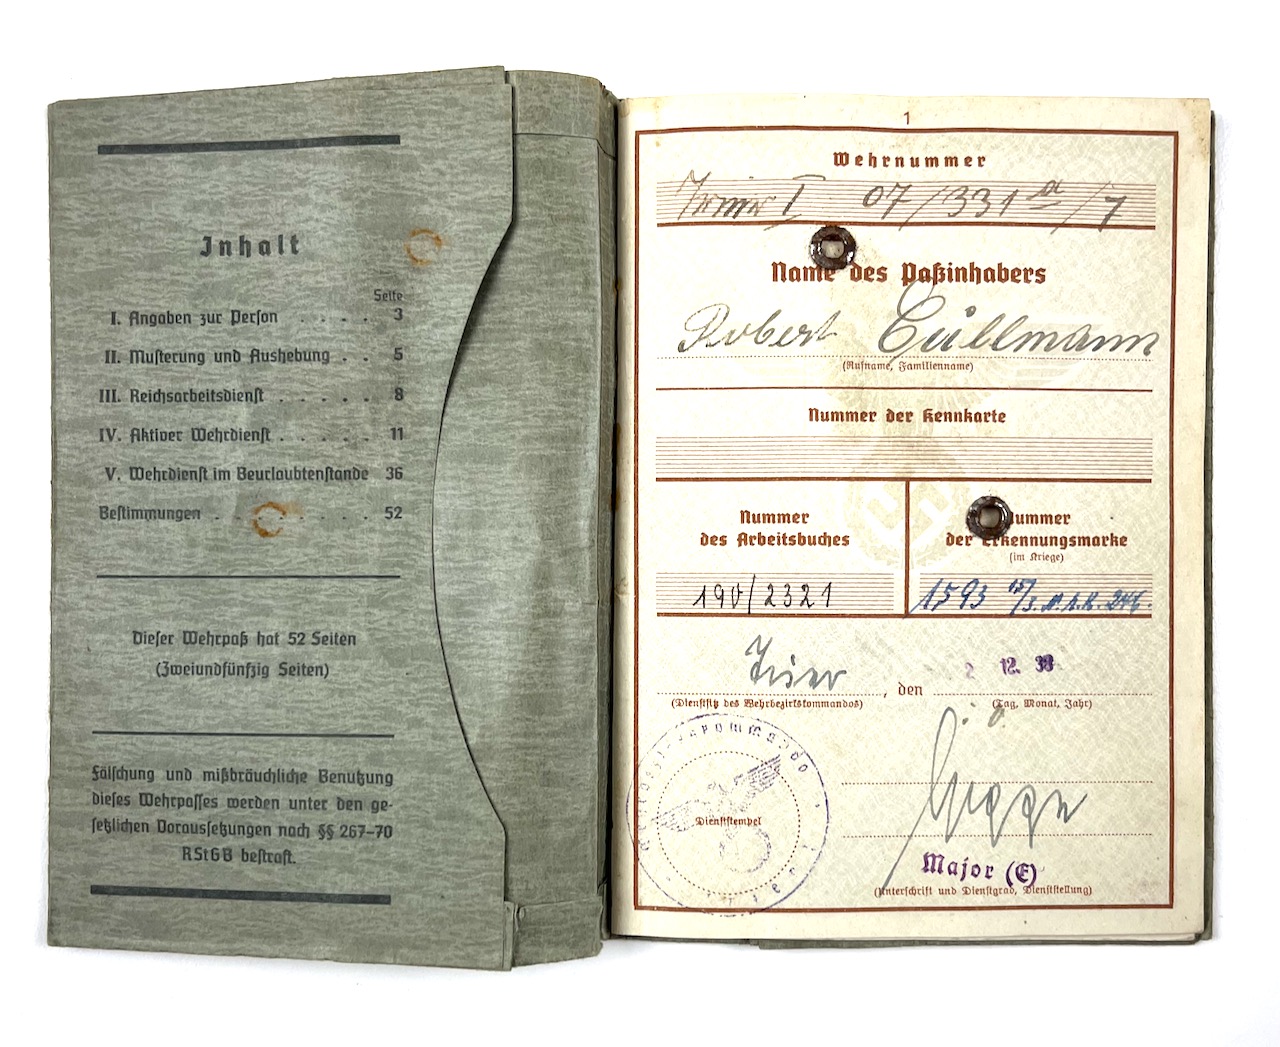 Inhalt
Seite
I. Angaben zur Person . . . . 3
II. Musterung und Aushebung . . 5
III. Reichsarbeitsdienst . . . . . 8
IV. Aktiver Wehrdienst . . . . . 11
V. Wehrdienst im Beurlaubtenstande 36
Bestimmungen . . . . . . . 52
Dieser Wehrpaß hat 52 Seiten
(Zweiundfünfzig Seiten)
Fälschung und mißbräuchliche Benutzung
dieses Wehrpasses werden unter den ge-
setzlichen Voraussetzungen nach §§ 267–70
RStGB bestraft.
1
Wehrnummer
Trier I 07/331 a/7
Name des Paßinhabers
Robert Cüllmann
(Rufname, Familienname)
Nummer der Kennkarte
Nummer
des Arbeitsbuches
Nummer
der Erkennungsmarke
(im Kriege)
190/2321
1593 246.
Trier, den 2 12. 38
(Dienstsitz des Wehrbezirkskommandos) (Tag, Monat, Jahr)
Dienststempel
Major (E)
(Unterschrift und Dienstgrad, Dienststellung)